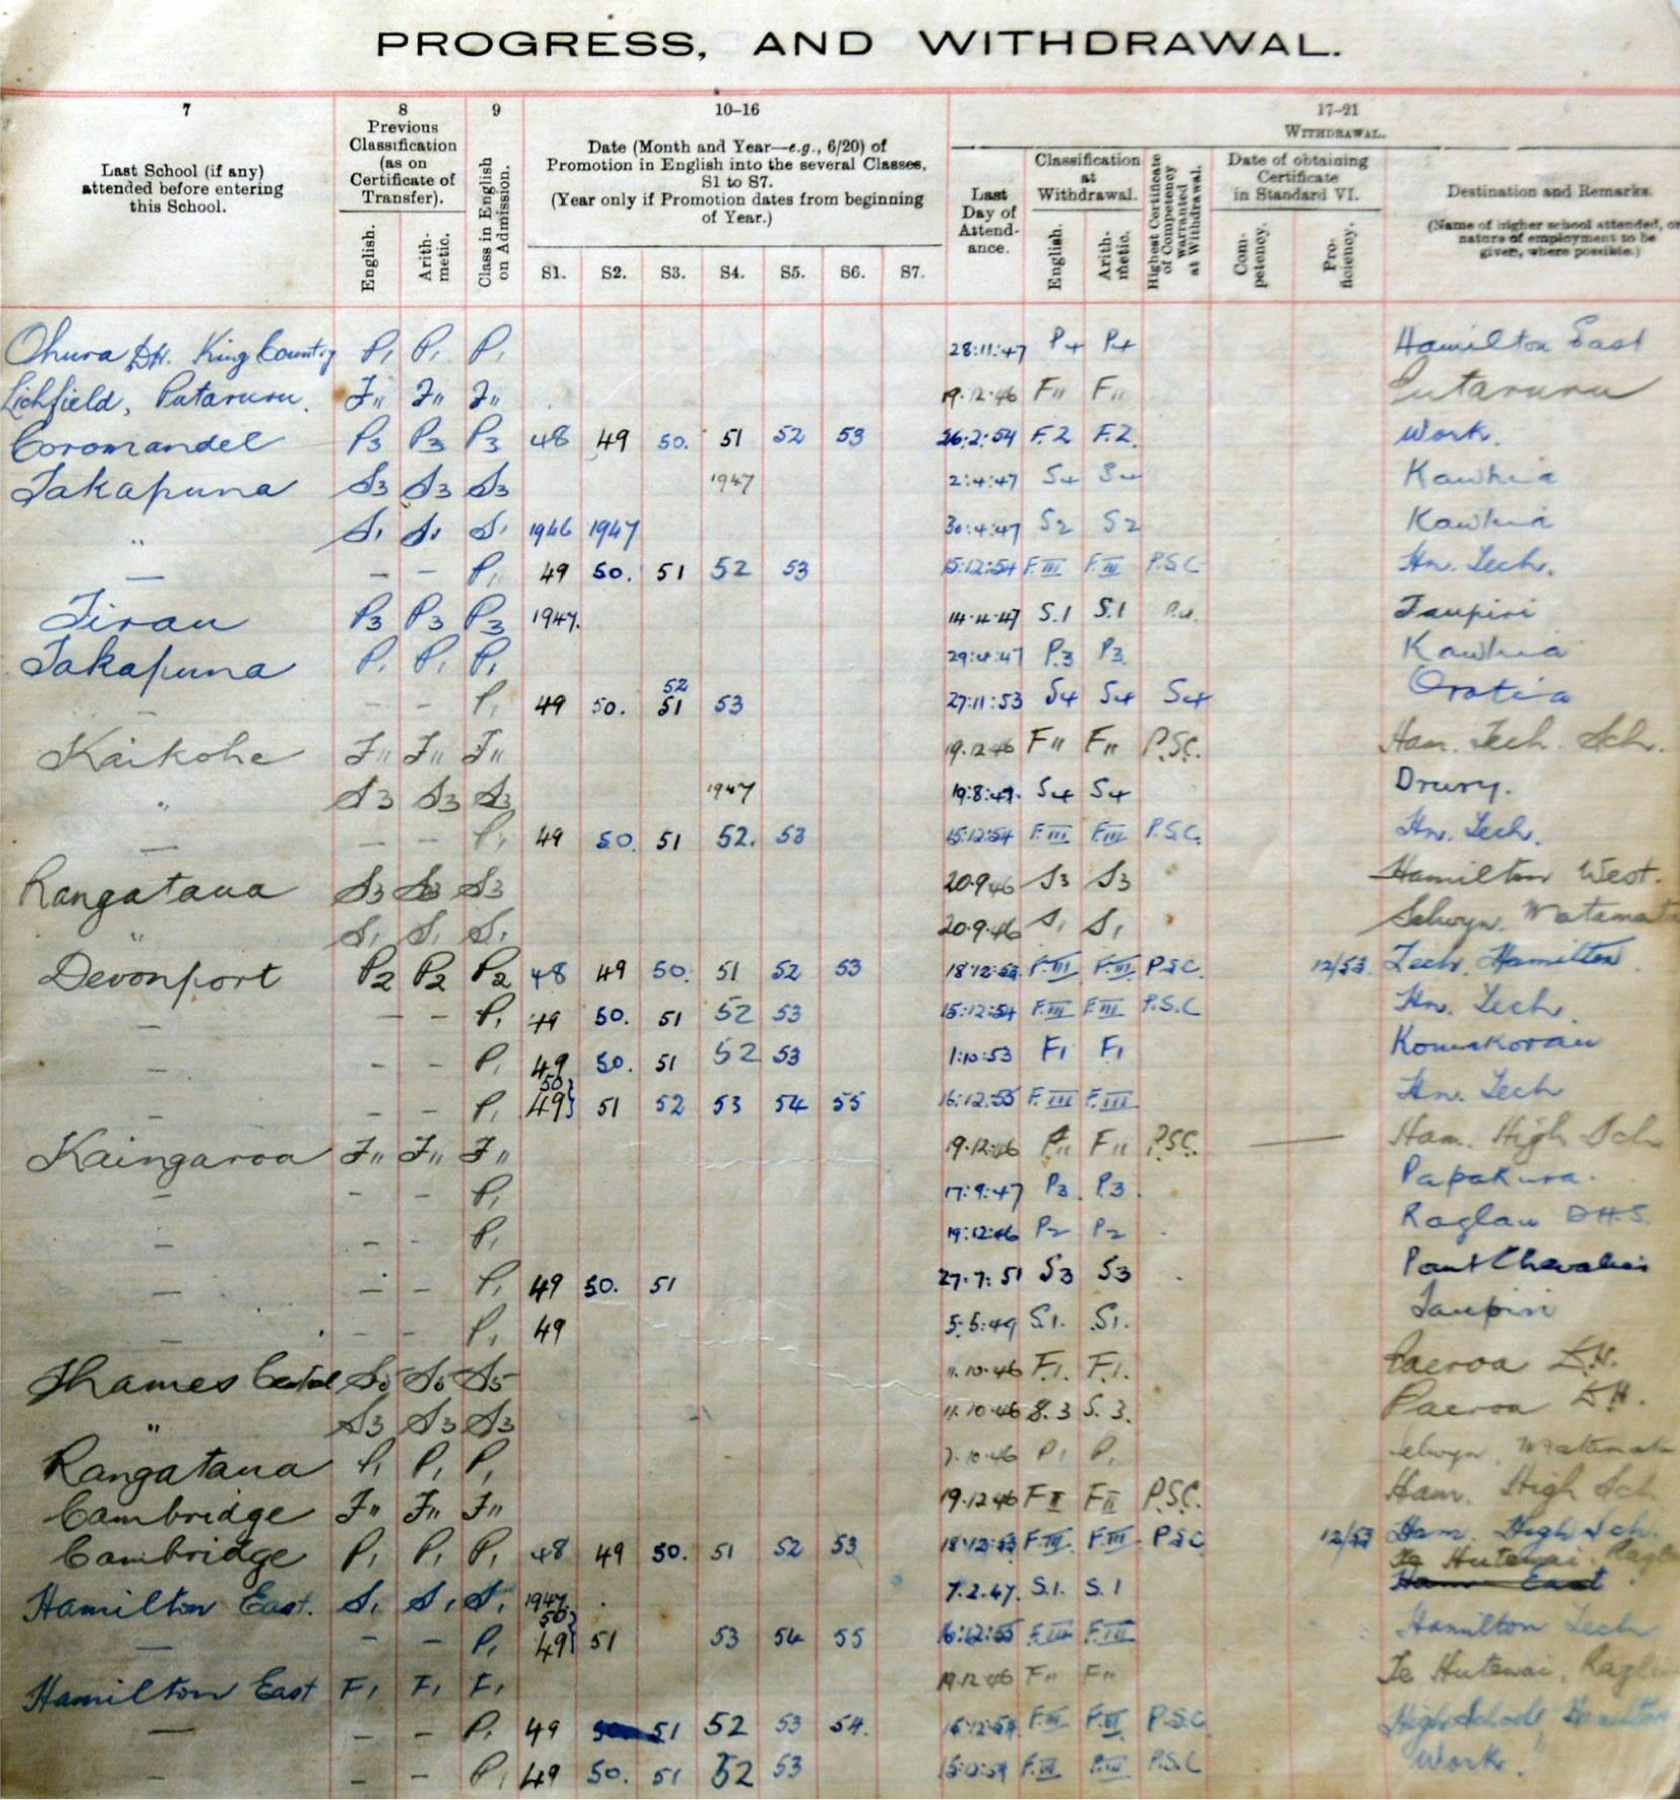 PROGRESS, AND WITHDRAWAL.
7 8 9 10–16 17–21
Last School (if any) attended before entering this School.
Previous Classification (as on Certificate of Transfer).
English. Arithmetic.
Class in English on Admission.
Date (Month and Year—e.g., 6/20) of Promotion in English into the several Classes, S1 to S7.
(Year only if Promotion dates from beginning of Year.)
S1. S2. S3. S4. S5. S6. S7.
WITHDRAWAL.
Last Day of Attendance.
Classification at Withdrawal.
English. Arithmetic.
Highest Certificate of Competency warranted at Withdrawal.
Date of obtaining Certificate in Standard VI.
Competency. Proficiency.
Destination and Remarks.
(Name of higher school attended, or nature of employment to be given, where possible.)
Ohura D.H. King Country P1 P1 P1 28:11:47 P4 P4 Hamilton East
Lichfield, Putaruru. F11 F11 F11 19.12.46 F11 F11 Putaruru
Coromandel P3 P3 P3 48 49 50. 51 52 53 26:2:54 F.2 F.2. Work.
Takapuna S3 S3 S3 1947 2:4:47 S4 S4 Kawhia
" S1 S1 S1 1946 1947 30:4:47 S2 S2 Kawhia
— – – P1 49 50. 51 52 53 15:12:54 F.III F.III P.S.C Hn. Tech.
Tirau P3 P3 P3 1947. 14.4.47 S.1 S.1 Taupiri
Takapuna P1 P1 P1 29:4:47 P.3 P3. Kawhia
– – – P1 49 50. 51 52 53 27:11:53 S4 S4 S4 Oratia
Kaikohe F11 F11 F11 19.12.46 F11 F11 P.S.C. Ham. Tech. Sch.
" S3 S3 S3 1947 19:8:47. S4 S4 Drury.
— – – P1 49 50. 51 52. 53 15:12:54 F.III F.III P.S.C. Hn. Tech.
Rangataua S3 S3 S3 20.9.46 S3 S3 Hamilton West.
" S1 S1 S1 20.9.46 S1 S1 Selwyn. Matamata
Devonport P2 P2 P2 48 49 50. 51 52 53 18:12:53 F.III F.III P.S.C. 12/53. Tech. Hamilton.
– – – P1 49 50. 51 52 53 15:12:54 F.III F.III P.S.C Hn. Tech.
– – – P1 49 50. 51 52 53 1:10:53 F1 F1
– – – P1 49 50} 51 52 53 54 55 16:12:55 F.III F.III Hn. Tech
Kaingaroa F11 F11 F11 19.12.46 F11 F11 P.S.C. — Ham. High Sch
– – – P1 17:9:47 P3. P.3. Papakura.
– – – P1 19:12:46 P2 P2 Raglan D.H.S.
– – – P1 49 50. 51 27.7:51 S3 S3 Point Chevalier
– – – P1 49 5:5:49 S.1. S1. Taupiri
Thames Central S5 S5 S5 11.10.46 F.1. F.1. Paeroa D.H.
" S3 S3 S3 11.10.46 S.3 S.3. Paeroa D.H.
Rangataua P1 P1 P1 7.10.46 P1 P1 Selwyn. Matamata
Cambridge F11 F11 F11 19.12.46 F II F II P.S.C. Ham. High Sch
Cambridge P1 P1 P1 48 49 50. 51 52 53 18:12:53 F.III. F.III P.S.C 12/53 Ham. High Sch.
Te Hutewai. Ragl
Hamilton East. S1 S1 S1 1947. 7.2.47. S.1. S.1 Ham East.
— – – P1 49 50} 51 53 54 55 16:12:55 F.III F.III Hamilton Tech
Hamilton East F1 F1 F1 19.12.46 F11 F11 Te Hutewai, Ragl
— – – P1 49 50 51 52 53 54. F.III F.III P.S.C High School, Hamilton
– – – P1 49 50. 51 52 53 F.III F.III P.S.C Work.